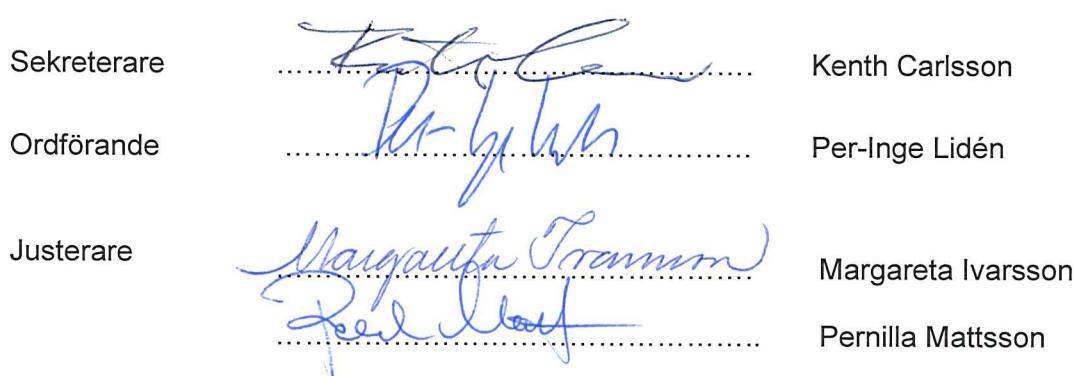 Sekreterare Kenth Carlsson
Ordförande Per-Inge Lidén
Justerare Margareta Ivarsson Margareta Ivarsson
Pernilla Mattsson